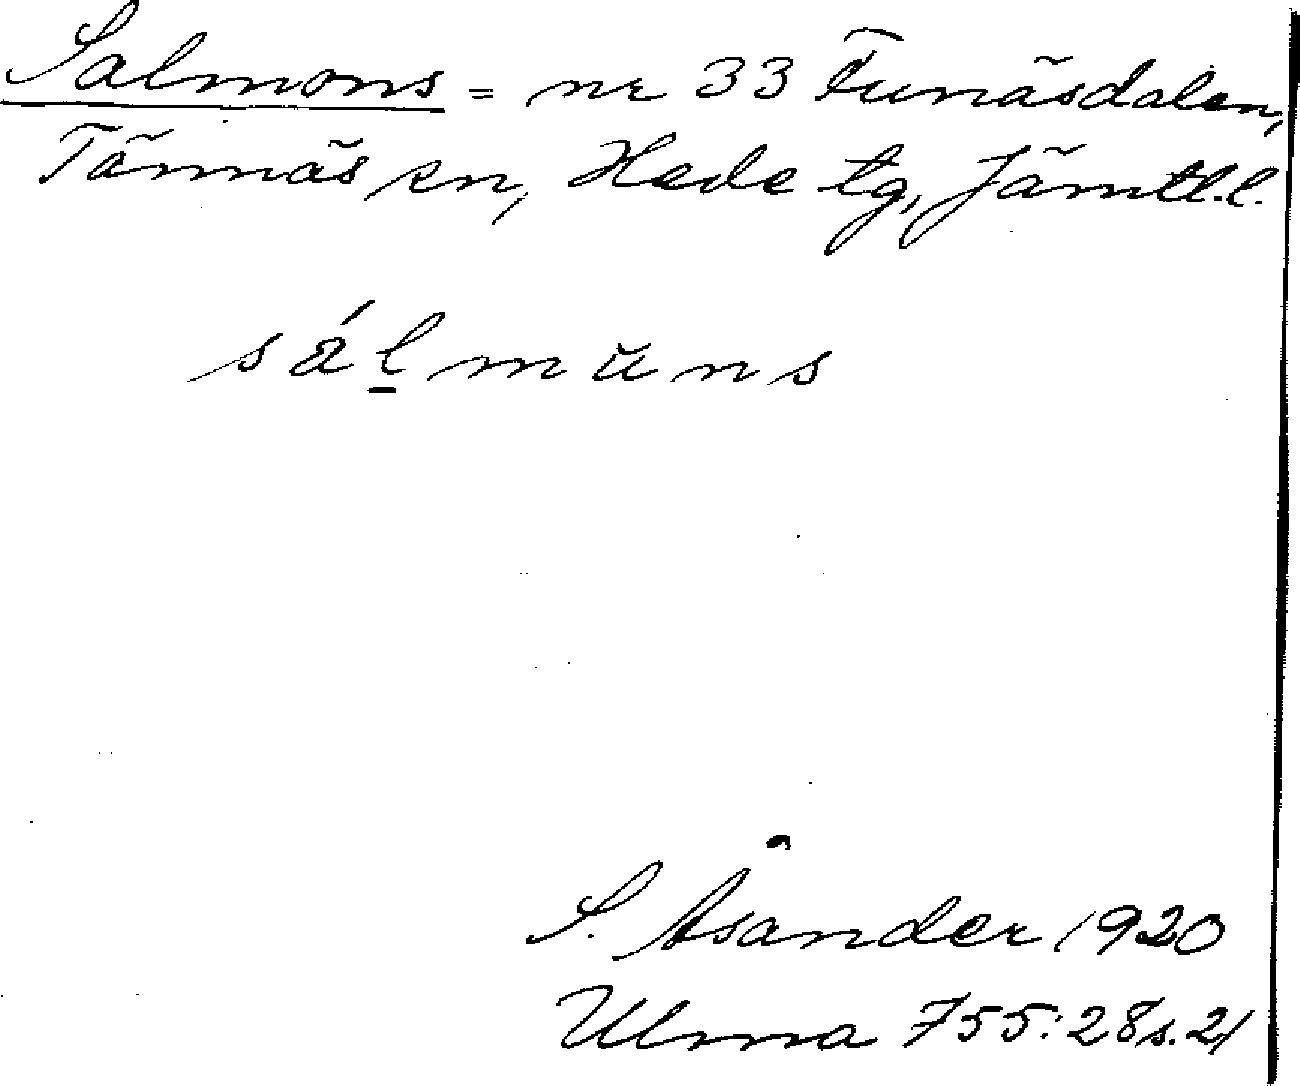 Salmons = nr 33 Funäsdalen,
Tännäs sn, Hede tg, Jämtl.l.
sálmŭns
S. Åsander 1920
Ulma 755:28 s. 21